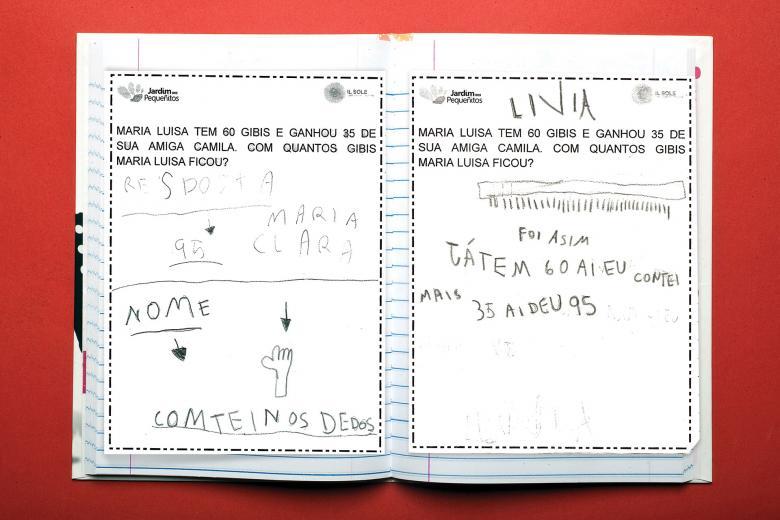 Jardim dos
Pequeñitos
IL SOLE
MARIA LUISA TEM 60 GIBIS E GANHOU 35 DE
SUA AMIGA CAMILA. COM QUANTOS GIBIS
MARIA LUISA FICOU?
RESPOSTA
95
MARIA
CLARA
NOME
COMTEI NOS DEDOS
Jardim dos
Pequeñitos
IL SOLE
LIVIA
MARIA LUISA TEM 60 GIBIS E GANHOU 35 DE
SUA AMIGA CAMILA. COM QUANTOS GIBIS
MARIA LUISA FICOU?
FOI ASIM
TEM 60 AI EU CONTEI
MAIS 35 AI DEU 95